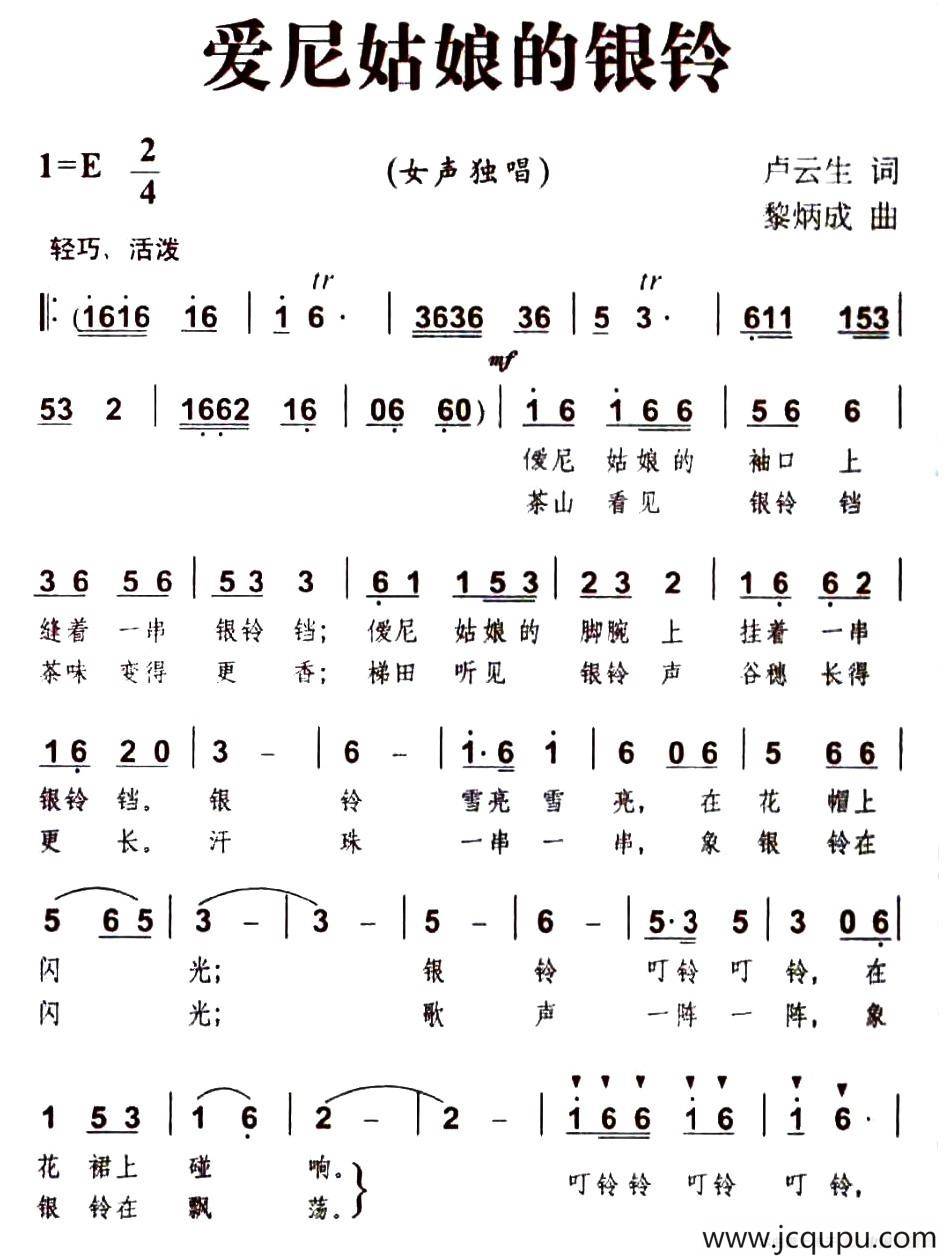 爱尼姑娘的银铃
1=E 2/4
(女声独唱)
卢云生 词
黎炳成 曲
轻巧、活泼
tr tr
‖: (i6i6 i6 | i 6· | 3636 36 | 5 3· | 611 153 |
mf
53 2 | 1662 16 | 06 60) | i 6 i 6 6 | 5 6 6 |
僾尼 姑娘的 袖口 上
茶山 看见 银铃 铛
3 6 5 6 | 5 3 3 | 6 1 1 5 3 | 2 3 2 | 1 6 6 2 |
缝着 一串 银铃 铛; 僾尼 姑娘的 脚腕 上 挂着 一串
茶味 变得 更 香; 梯田 听见 银铃 声 谷穗 长得
1 6 2 0 | 3 - | 6 - | i·6 i | 6 0 6 | 5 6 6 |
银铃 铛。 银 铃 雪亮 雪 亮, 在 花 帽上
更 长。 汗 珠 一串 一 串, 象 银 铃在
5 6 5 | 3 - | 3 - | 5 - | 6 - | 5·3 5 | 3 0 6 |
闪 光; 银 铃 叮铃 叮 铃, 在
闪 光; 歌 声 一阵 一 阵, 象
1 5 3 | 1 6 | 2 - | 2 - | i 6 6 i 6 | i 6· |
花 裙上 碰 响。 叮铃铃 叮铃 叮 铃,
银 铃在 飘 荡。
www.jcqupu.com